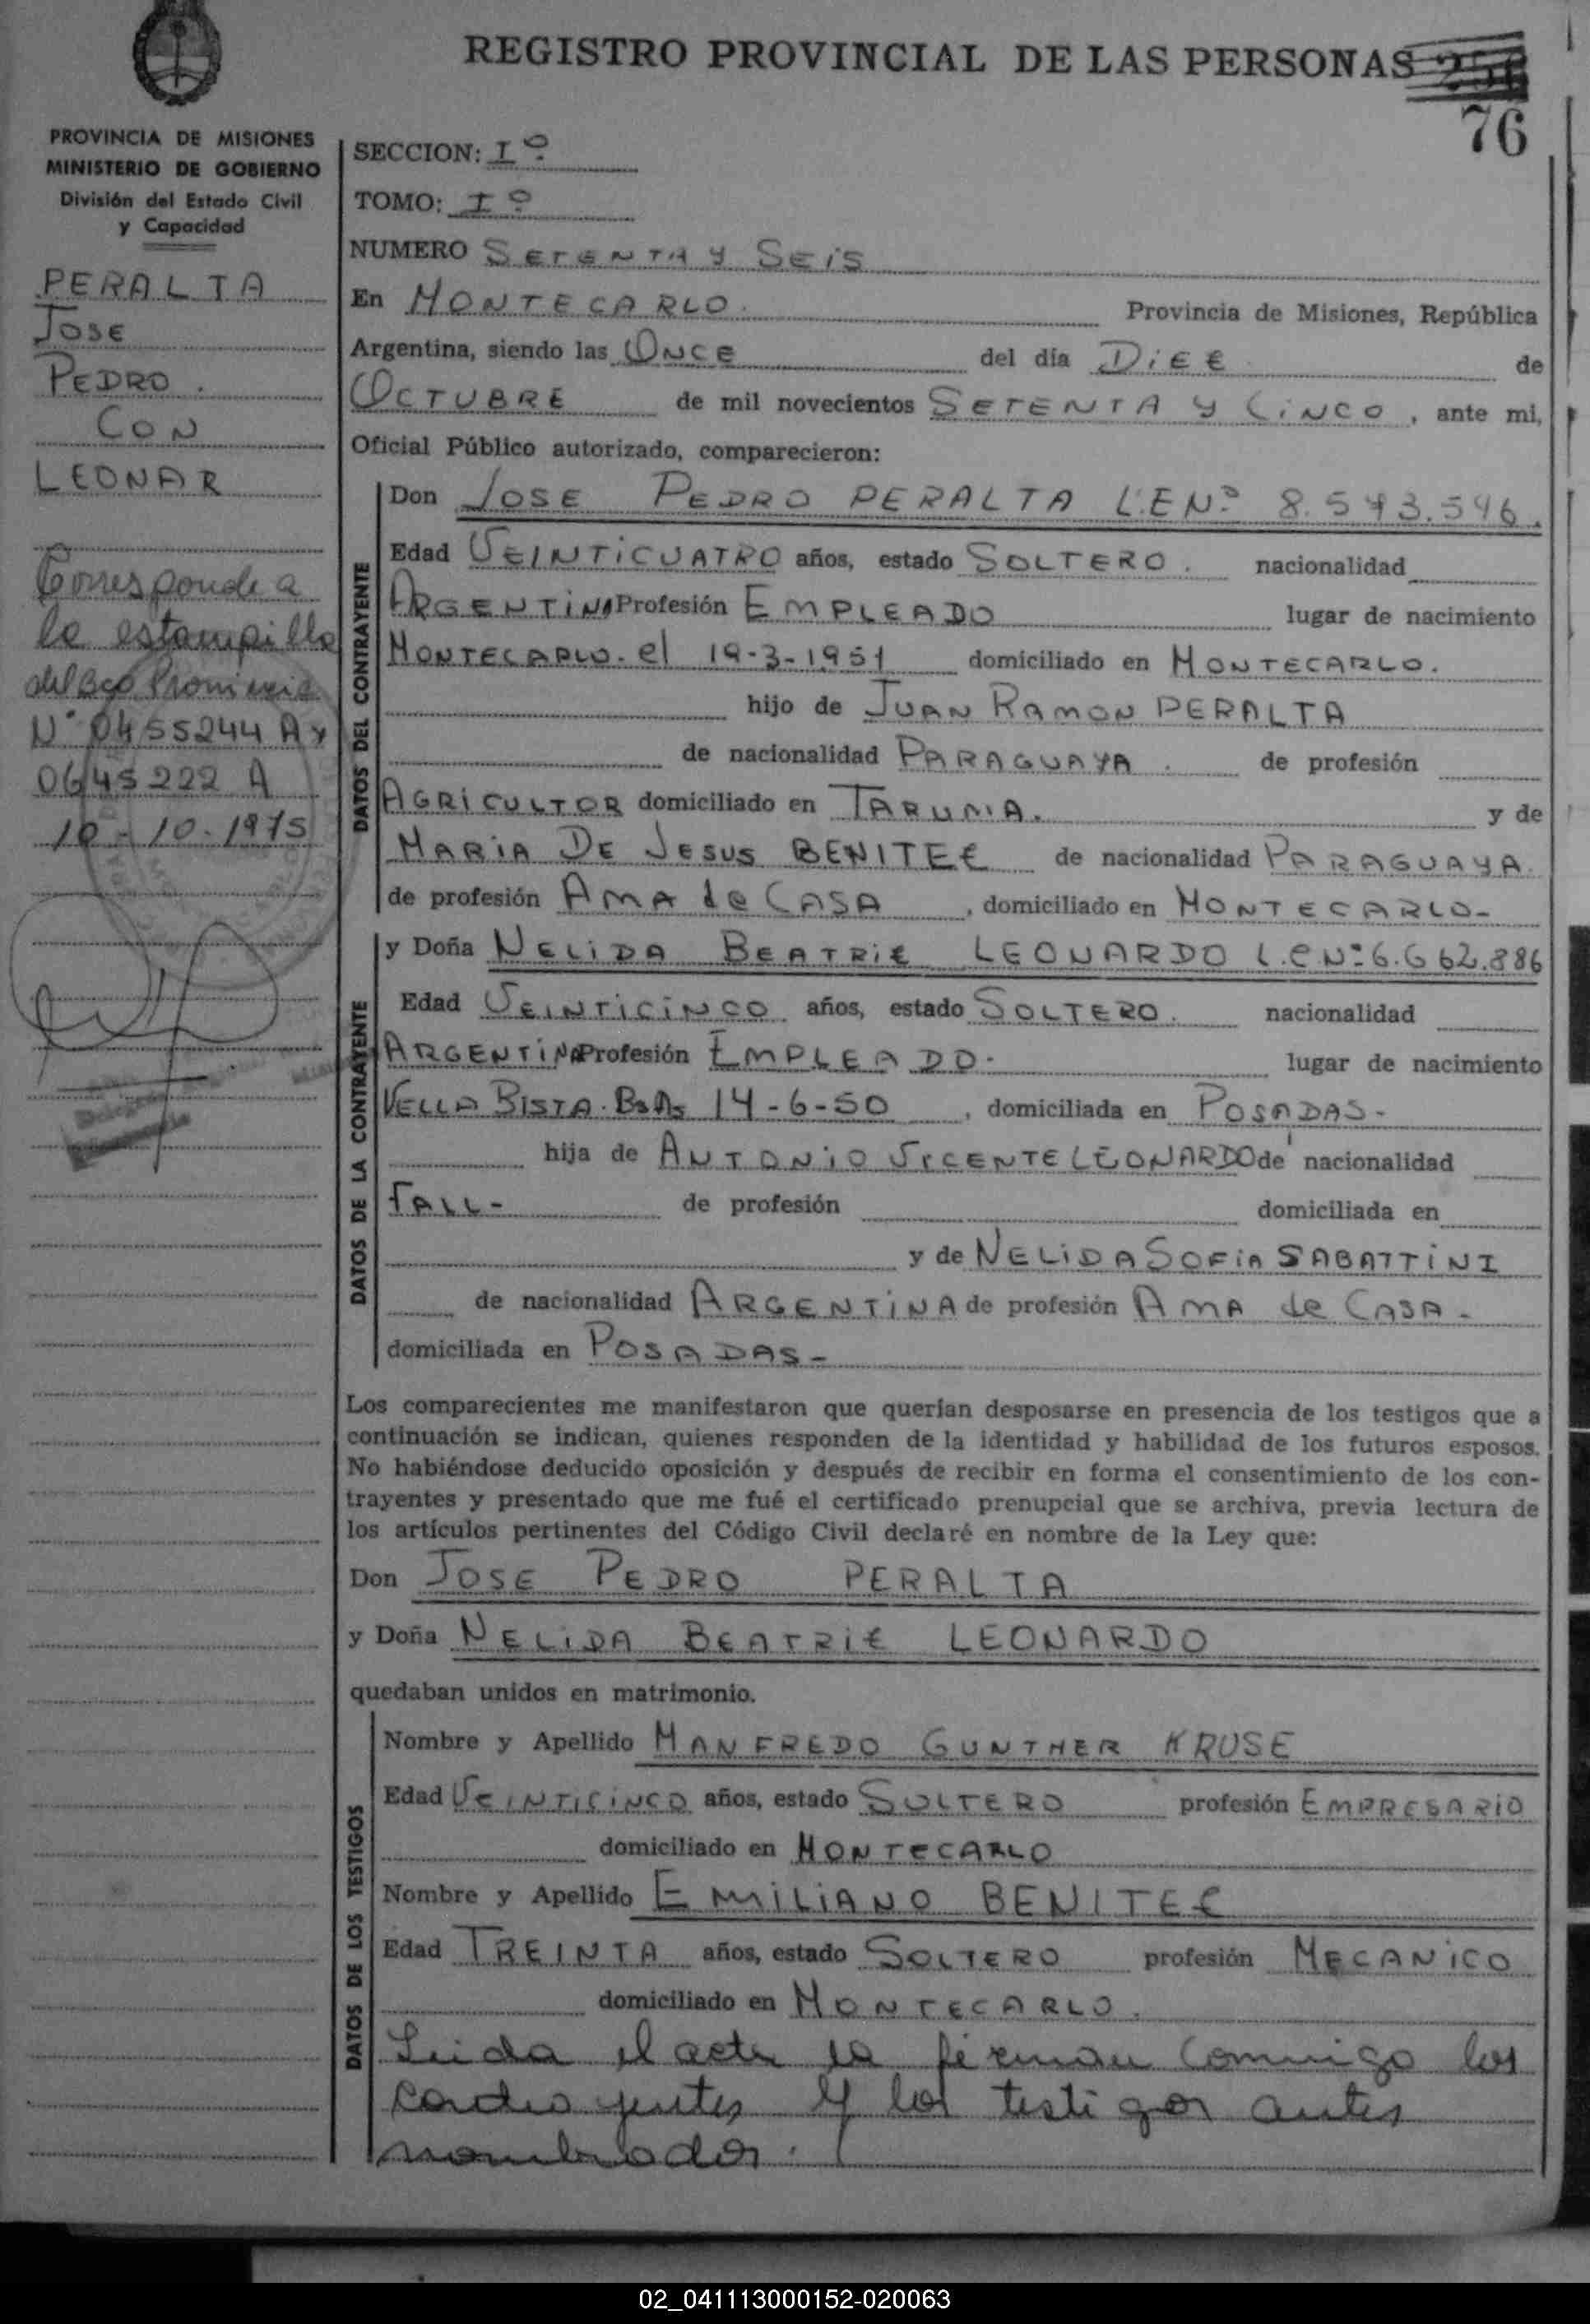 REGISTRO PROVINCIAL DE LAS PERSONAS
76
PROVINCIA DE MISIONES
MINISTERIO DE GOBIERNO
División del Estado Civil
y Capacidad
PERALTA
JOSE
PEDRO.
CON
LEONAR
Corresponde a
la estampilla
del Bco Provincia
N° 0455244 A y
0645222 A
10-10-1975
SECCION: I°
TOMO: I°
NUMERO SETENTA Y SEIS
En MONTECARLO. Provincia de Misiones, República
Argentina, siendo las ONCE del día DIEZ de
OCTUBRE de mil novecientos SETENTA Y CINCO, ante mi,
Oficial Público autorizado, comparecieron:
DATOS DEL CONTRAYENTE
Don JOSE PEDRO PERALTA L.E N° 8.573.596.
Edad VEINTICUATRO años, estado SOLTERO. nacionalidad
ARGENTINA Profesión EMPLEADO lugar de nacimiento
MONTECARLO. el 19-3-1951 domiciliado en MONTECARLO.
hijo de JUAN RAMON PERALTA
de nacionalidad PARAGUAYA. de profesión
AGRICULTOR domiciliado en TARUMA. y de
MARIA DE JESUS BENITEZ de nacionalidad PARAGUAYA.
de profesión AMA de CASA, domiciliado en MONTECARLO-
DATOS DE LA CONTRAYENTE
y Doña NELIDA BEATRIZ LEONARDO L.C N°: 6.662.886
Edad VEINTICINCO años, estado SOLTERO. nacionalidad
ARGENTINA Profesión EMPLEADO. lugar de nacimiento
VELLA BISTA. Bs As 14-6-50, domiciliada en POSADAS-
hija de ANTONIO VICENTE LEONARDO de nacionalidad
FALL- de profesión domiciliada en
y de NELIDA SOFIA SABATTINI
de nacionalidad ARGENTINA de profesión AMA de CASA-
domiciliada en POSADAS-
Los comparecientes me manifestaron que querían desposarse en presencia de los testigos que a
continuación se indican, quienes responden de la identidad y habilidad de los futuros esposos.
No habiéndose deducido oposición y después de recibir en forma el consentimiento de los con-
trayentes y presentado que me fué el certificado prenupcial que se archiva, previa lectura de
los artículos pertinentes del Código Civil declaré en nombre de la Ley que:
Don JOSE PEDRO PERALTA
y Doña NELIDA BEATRIZ LEONARDO
quedaban unidos en matrimonio.
DATOS DE LOS TESTIGOS
Nombre y Apellido MANFREDO GUNTHER KRUSE
Edad VEINTICINCO años, estado SOLTERO profesión EMPRESARIO
domiciliado en MONTECARLO
Nombre y Apellido EMILIANO BENITEZ
Edad TREINTA años, estado SOLTERO profesión MECANICO
domiciliado en MONTECARLO.
Leida el acta la firman conmigo los
contrayentes y los testigos antes
nombrados.
02_041113000152-020063